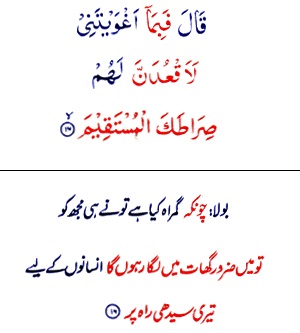 قَالَ فَبِمَاۤ اَغْوَيْتَنِىْ
لَاَقْعُدَنَّ لَهُمْ
صِرَاطَكَ الْمُسْتَقِيْمَ ۙ‏﴿۱۶﴾
بولا: چونکہ گمراہ کیا ہے تو نے ہی مجھ کو
تو میں ضرور گھات میں لگا رہوں گا انسانوں کے لیے
تیری سیدھی راہ پر ﴿۱۶﴾